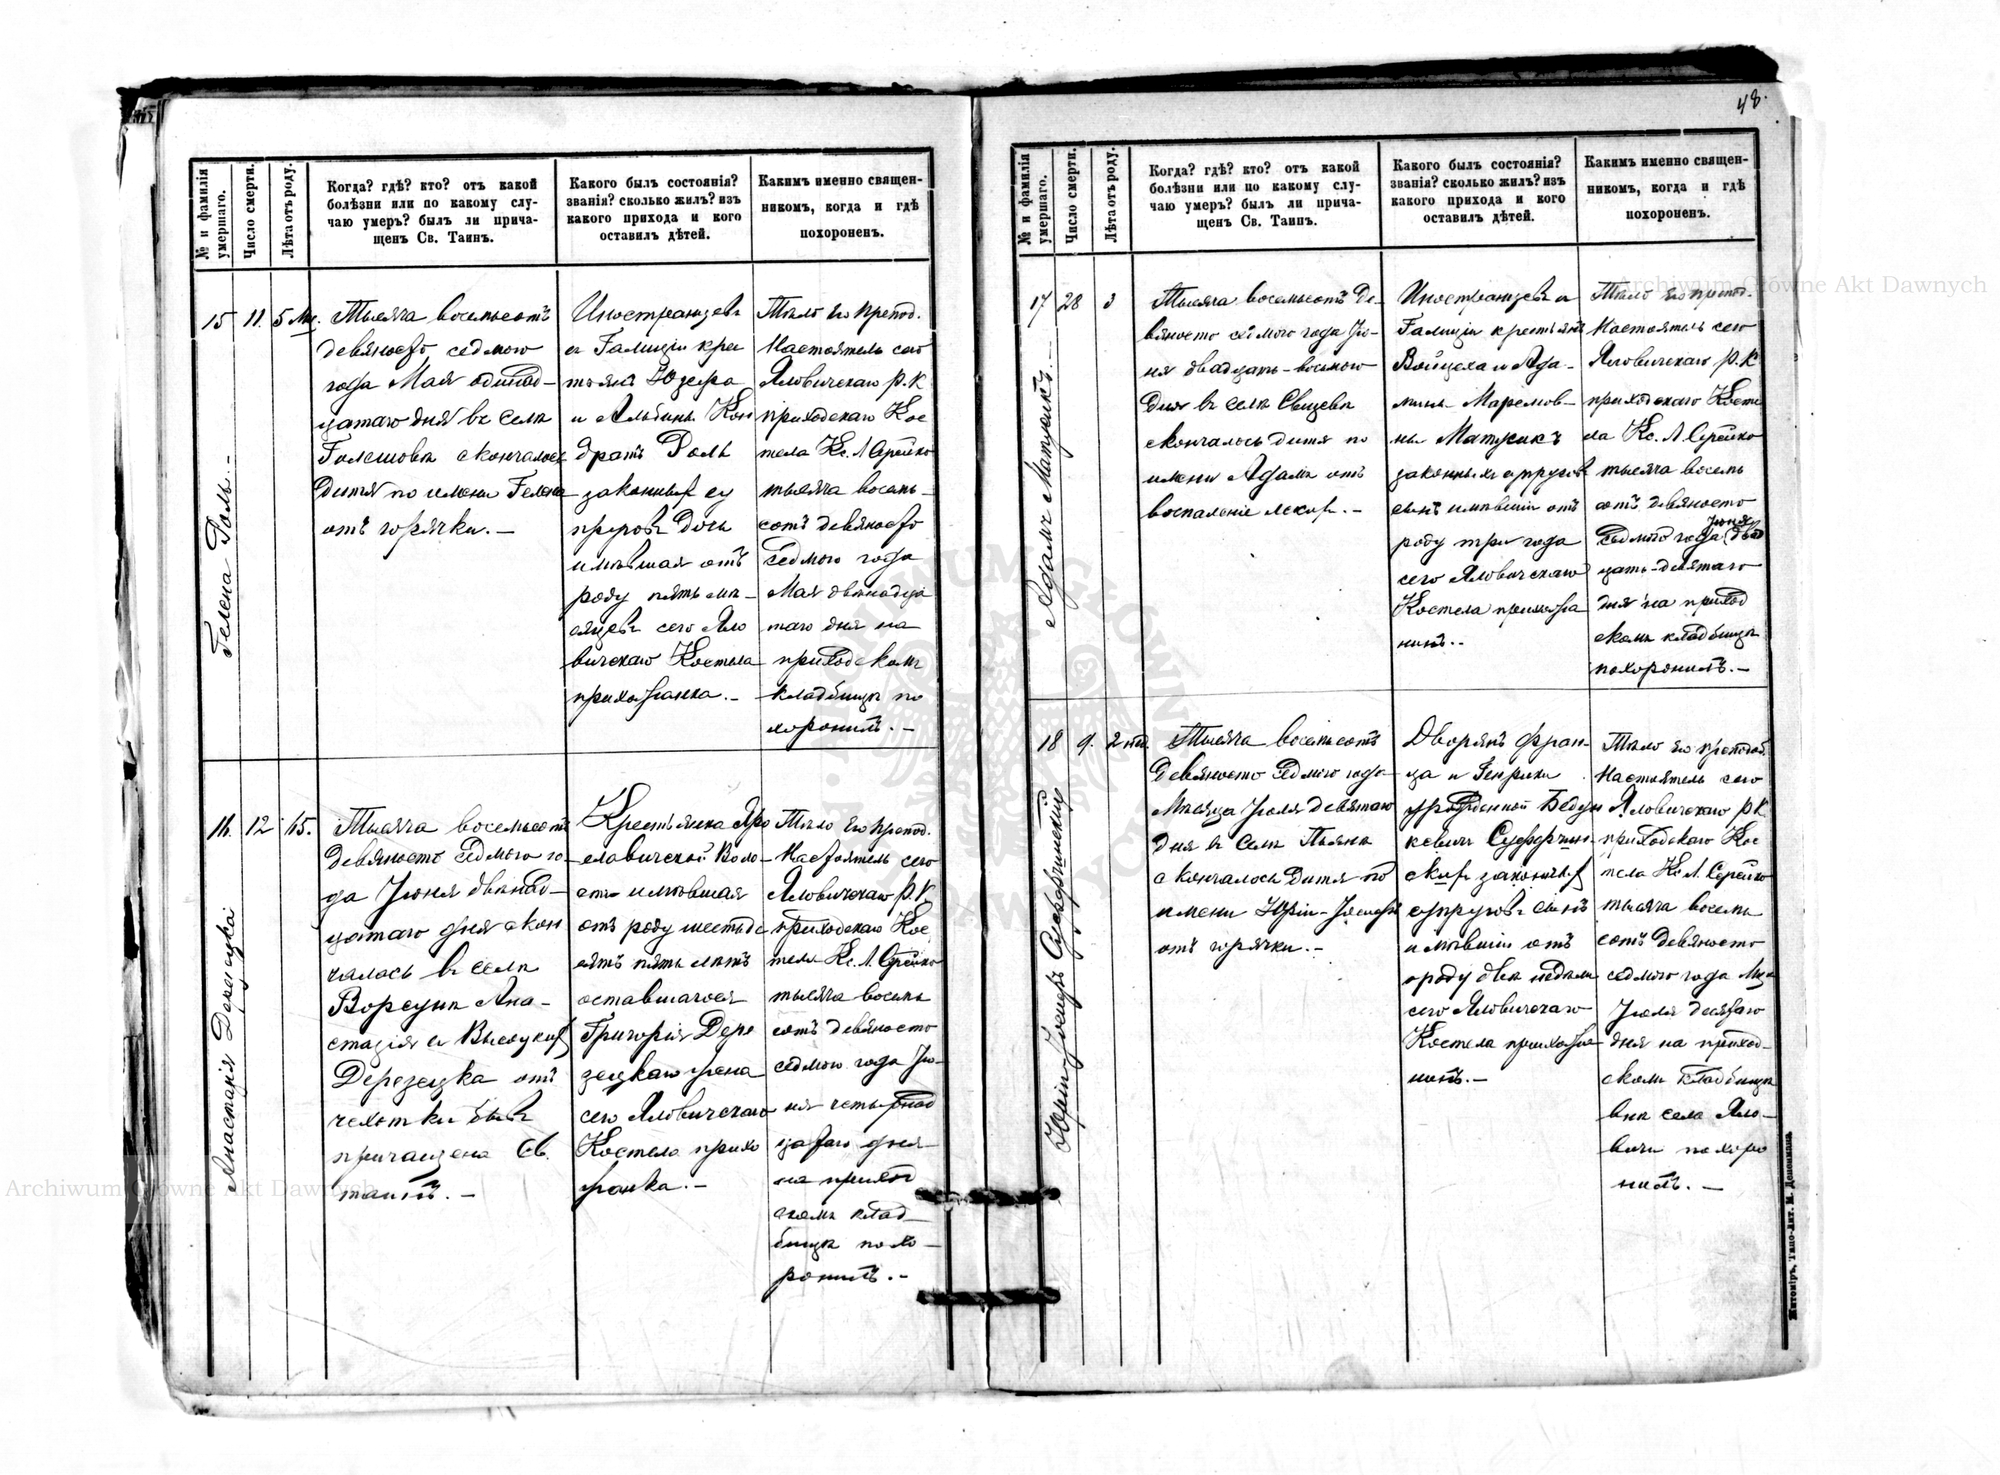 48.
№ и фамилія умершаго.
Число смерти.
Лѣта отъ роду.
Когда? гдѣ? кто? отъ какой
болѣзни или по какому слу-
чаю умеръ? былъ ли прича-
щенъ Св. Таинъ.
Какого былъ состоянія?
званія? сколько жилъ? изъ
какого прихода и кого
оставилъ дѣтей.
Какимъ именно священ-
никомъ, когда и гдѣ
похороненъ.
15
Гелена Роль.-
11.
5 Мц.
Тысяча восемьсотъ
девяносто седмого
года Мая одинад-
цатаго дня въ селѣ
скончалось
дитя по имени Гелена
отъ горячки.-
Иностранцевъ
изъ Галиціи кре
стьянъ Юзефа
и Альбины Кон
дратъ Роль
законныхъ су
пруговъ дочь
имѣвшая отъ
роду пять мѣ-
сяцевъ сего Яло
вичскаго Костела
прихожанка.-
Тѣло Его Препод.
Настоятель сего
Яловичскаго Р. К
приходскаго Кос
тела Кс. Л
тысяча восемь-
сотъ девяносто
седмого года
Мая двѣнадца
таго дня на
приходскомъ
кладбищѣ по
хоронилъ.-
16.
Анастасія Дерезецка
12
65.
Тысяча восемьсотъ
девяносто седмого го-
да Іюня двѣнад-
цатаго дня скон
чалась въ селѣ
Ворсунѣ Ана-
стасія изъ Высоцкихъ
Дерезецка отъ
чехотки бывъ
причащена Св.
таинъ.-
Крестьянка Яро
славичской Воло-
сти имѣвшая
отъ роду шестьде
сятъ пять лѣтъ
оставшагося
Григорія Дере
зецкаго жена
сего Яловичскаго
Костела прихо
жанка.-
Тѣло Его Препод.
Настоятель сего
Яловичскаго Р. К.
приходскаго Кос
тела Кс. Л.
тысяча восемь
сотъ девяносто
седмого года Ію-
ня четырнад
цатаго дня
на приход
скомъ клад-
бищѣ похо-
ронилъ.-
№ и фамилія умершаго.
Число смерти.
Лѣта отъ роду.
Когда? гдѣ? кто? отъ какой
болѣзни или по какому слу-
чаю умеръ? былъ ли прича-
щенъ Св. Таинъ.
Какого былъ состоянія?
званія? сколько жилъ? изъ
какого прихода и кого
оставилъ дѣтей.
Какимъ именно священ-
никомъ, когда и гдѣ
похороненъ.
17
Адамъ Матусикъ.-
28
3
Тысяча восемьсотъ де-
вяносто седмого года Ію-
ня двадцать-восьмого
дня въ селѣ
скончалось дитя по
имени Адамъ отъ
воспаленіе лекихъ.-
Иностранцевъ изъ
Галиціи крестьянъ
Войцеха и
Матусикъ
законныхъ супруговъ
сынъ имѣвшій отъ
роду три года
сего Яловичскаго
Костела прихожа
нинъ.-
Тѣло Его Препод.
Настоятель сего
Яловичскаго Р. К
приходскаго Косте
ла Кс. Л
тысяча восемь
сотъ девяносто
седмого года Іюня двад
цать-девятаго
дня на приход
скомъ кладбищѣ
похоронилъ.-
18
9.
2 нед.
Тысяча восемьсотъ
девяносто седмого года
Мѣсяца Іюля девятаго
дня въ селѣ Пьянѣ
скончалось дитя по
имени Юрій-
отъ горячки.-
Дворянъ Фран-
ца и Генрики
урожденной
законныхъ
супруговъ сынъ
имѣвшій отъ
роду двѣ недѣли
сего Яловичскаго
Костела прихожа
нинъ.-
Тѣло Его Препод.
Настоятель сего
Яловичскаго Р. К
приходскаго Кос
тела Кс. Л.
тысяча восемь
сотъ девяносто
седмого года Мца
Іюля десятаго
дня на приход-
скомъ кладбищѣ
внѣ села Яло-
вичи похоро
нилъ.-
Житоміръ, Типо-Лит. М. Дененмана.
Archiwum Główne Akt Dawnych
Archiwum Główne Akt Dawnych
ARCHIWUM GŁÓWNE AKT DAWNYCH